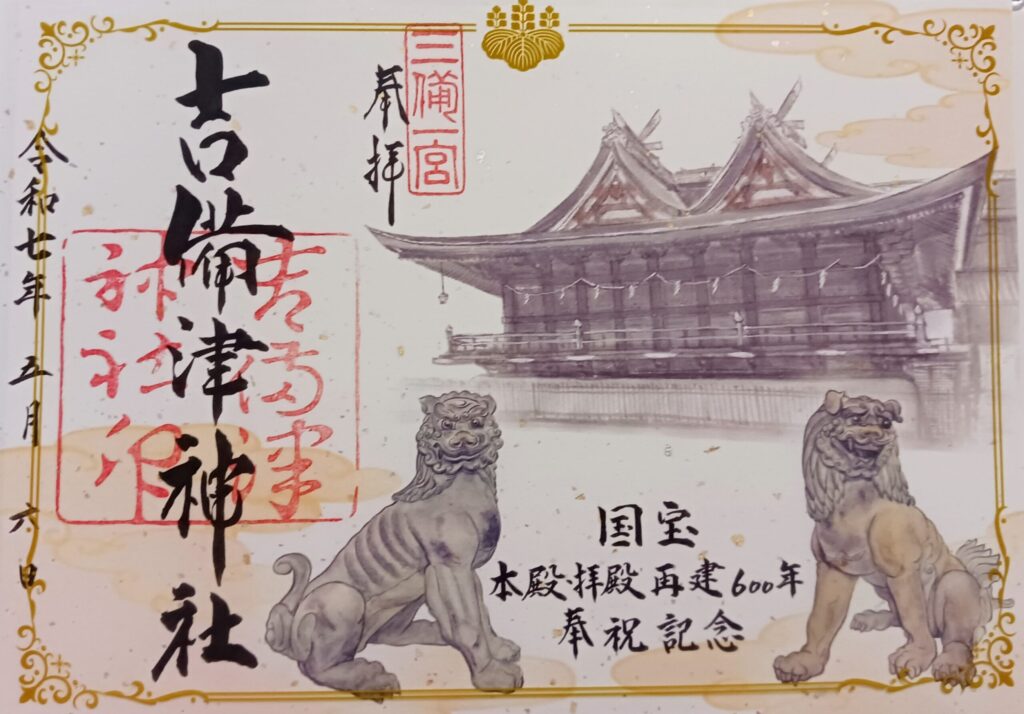 三備一宮
奉拝
吉備津神社
吉備津神社印
令和七年 五月 六日
国宝
本殿・拝殿再建600年
奉祝記念